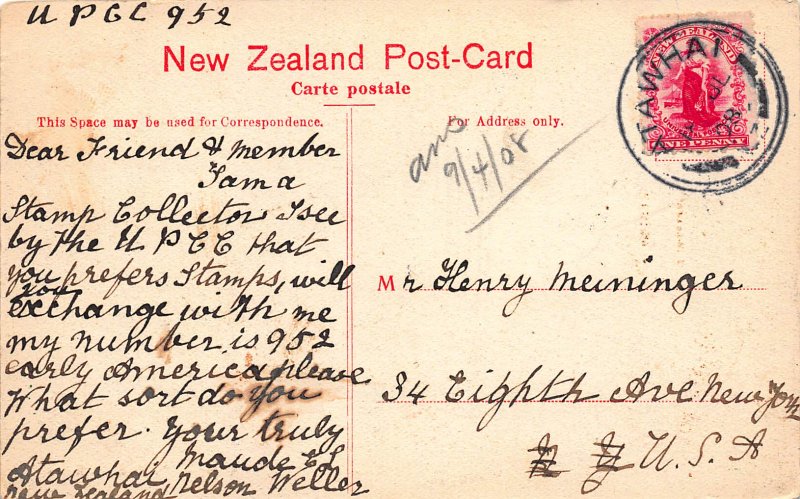 U P C C 952
New Zealand Post-Card
Carte postale
This Space may be used for Correspondence.
For Address only.
Dear Friend & member
I am a
Stamp Collector I see
by the U P C C that
you prefers Stamps, will
you
exchange with me
my number is 952
early America please
What sort do you
prefer. Your truly
Maude E J Weller
Atawhai Nelson
New Zealand
ans
9/4/08
Mr Henry Meininger
34 Eighth Ave New York
N Y U. S. A
ATAWHAI
08
NEW ZEALAND
UNIVERSAL
ONE PENNY